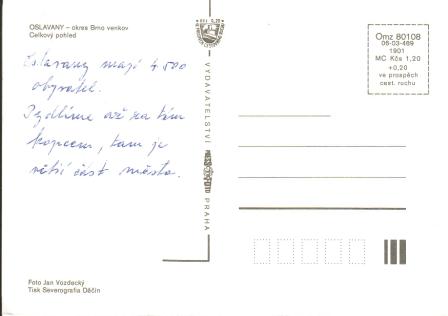 OSLAVANY – okres Brno venkov
Celkový pohled
Oslavany mají 4 500
obyvatel.
Bydlíme až za tím
kopcem, tam je
větší část města.
Foto Jan Vozdecký
Tisk Severografia Děčín
VYDAVATELSTVÍ
PRAHA
Omz 80108
06-03-469
1901
MC Kčs 1,20
+0,20
ve prospěch
cest. ruchu